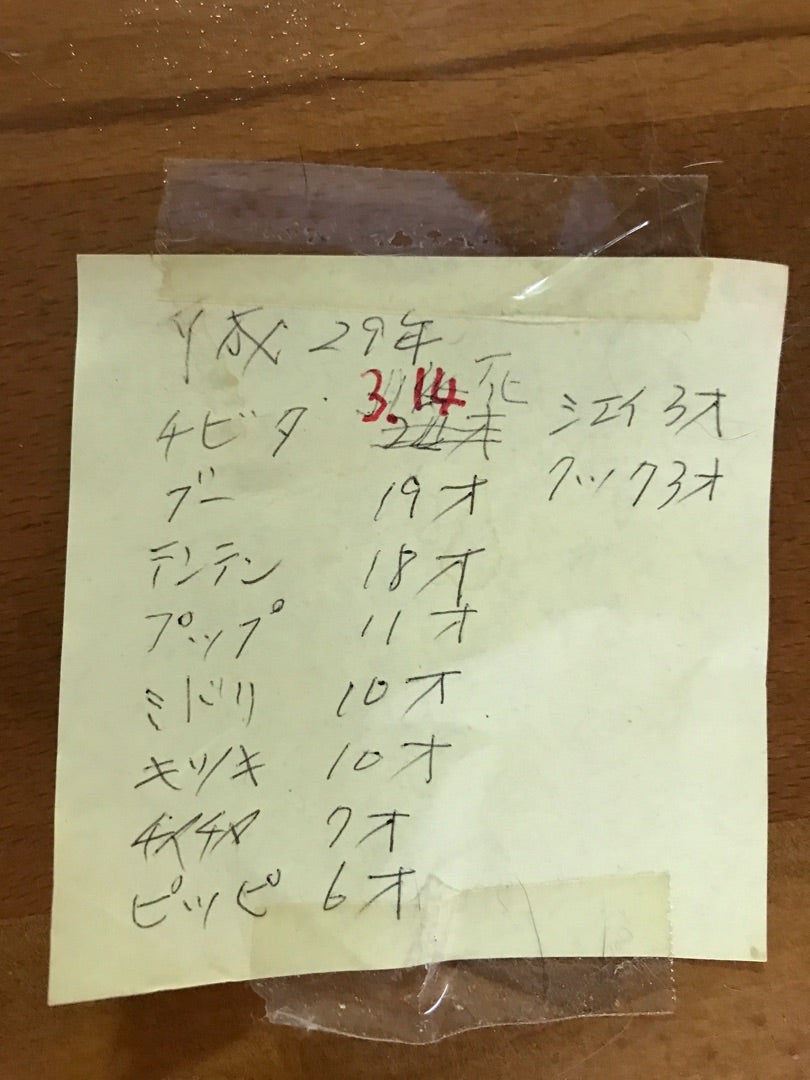 平成29年
3.14 死
チビタ
ブー 19才
テンテン 18才
プップ 11才
ミドリ 10才
キツキ 10才
チャチャ 7才
ピッピ 6才
シエイ 3才
クック 3才